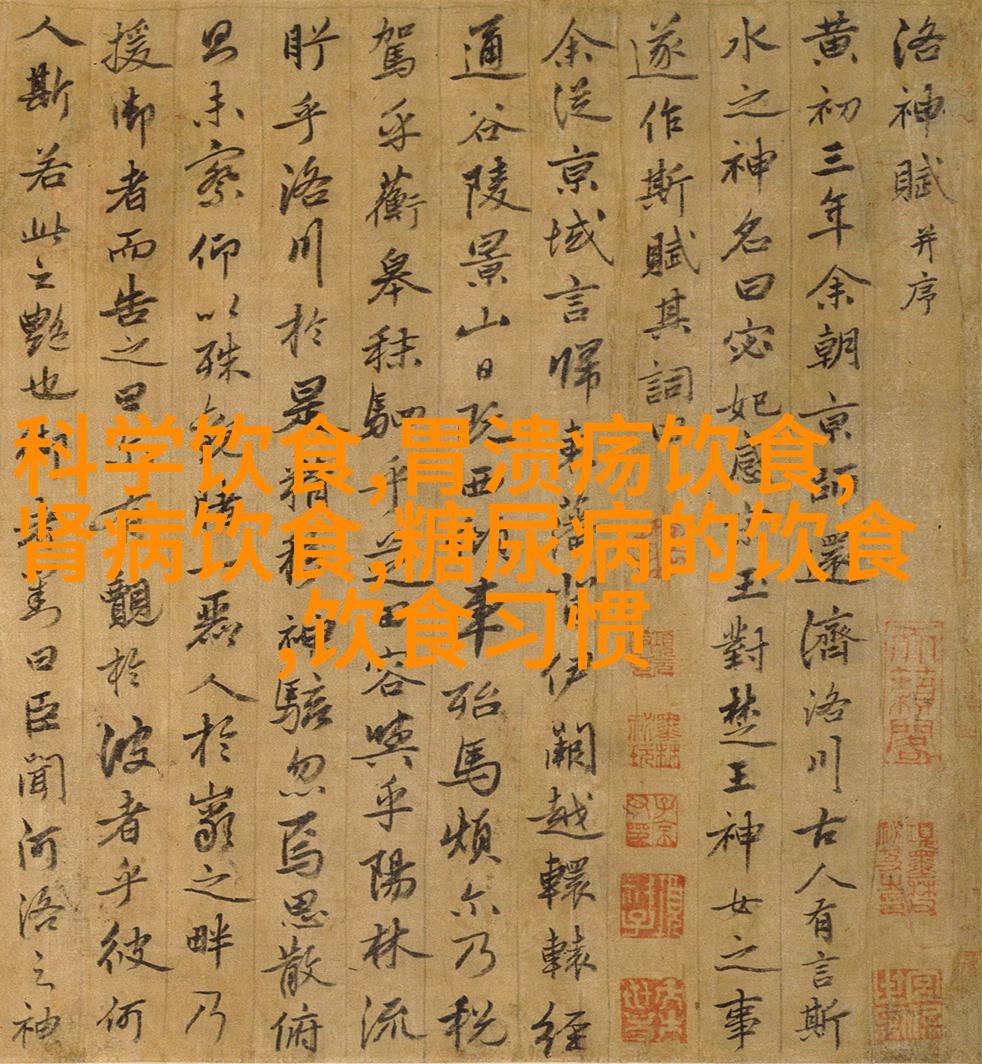 洛神賦并序
黄初三年余朝京師還濟洛川古人有言斯
水之神名曰宓妃感宋玉對楚王神女之事
遂作斯賦其詞曰
余從京域言歸東藩伊闕越轘轅經
通谷陵景山日既西傾車殆馬煩尓乃税
駕乎蘅皋秣駟乎芝田容與乎陽林流
眄乎洛川於是精移神駭忽焉思散俯
則未察仰以殊觀睹一麗人於巖之畔乃
援御者而告之曰尓有覿於彼者乎彼何
人斯若此之艷也御者對曰臣聞河洛之神
科学饮食,胃溃疡饮食,
肾病饮食,糖尿病的饮食
,饮食习惯